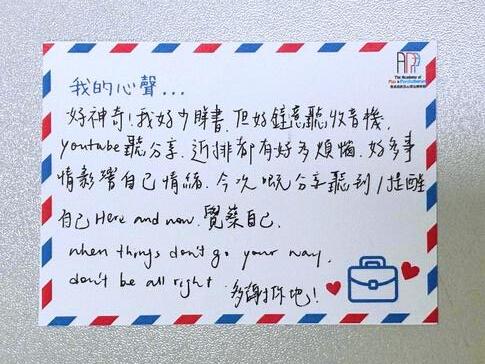 The Academy of
Play & Psychotherapy
我的心聲...
好神奇！我好少睇書，但好鍾意聽收音機，
youtube 聽分享，近排都有好多煩惱，好多事
情影響自己情緒，今次嘅分享聽到/提醒
自己 Here and now，覺察自己，
when things don't go your way，
don't be all right 多謝你地！